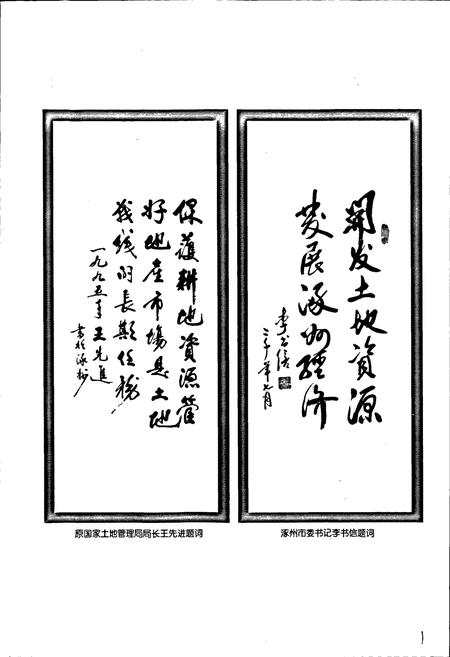 開发土地資源
發展涿州經济
李书信
年七月
涿州市委书记李书信题词
保護耕地資源管
好地產市場是土地
战线的長期任務
一九九五年王先進
書於涿州
原国家土地管理局局长王先进题词
1